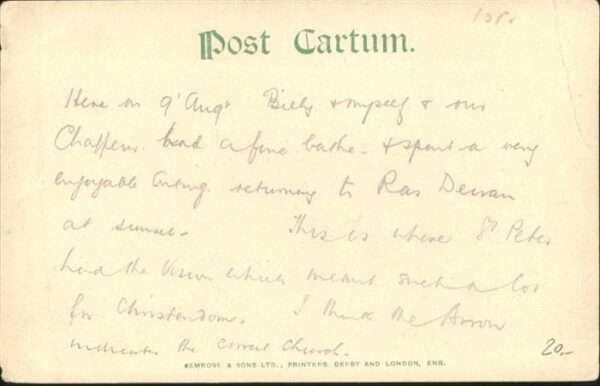 Post Cartum.
Here on 9' Aug' Billy & myself & our
Chaffeur had a fine bathe - & spent a very
enjoyable outing returning to Ras Deiran
at sunset - This is where St Peter
had the Vision which meant such a lot
for Christendome. I think the Arrow
indicates the correct Church.
20.-
BEMROSE & SONS LTD., PRINTERS, DERBY AND LONDON, ENG.